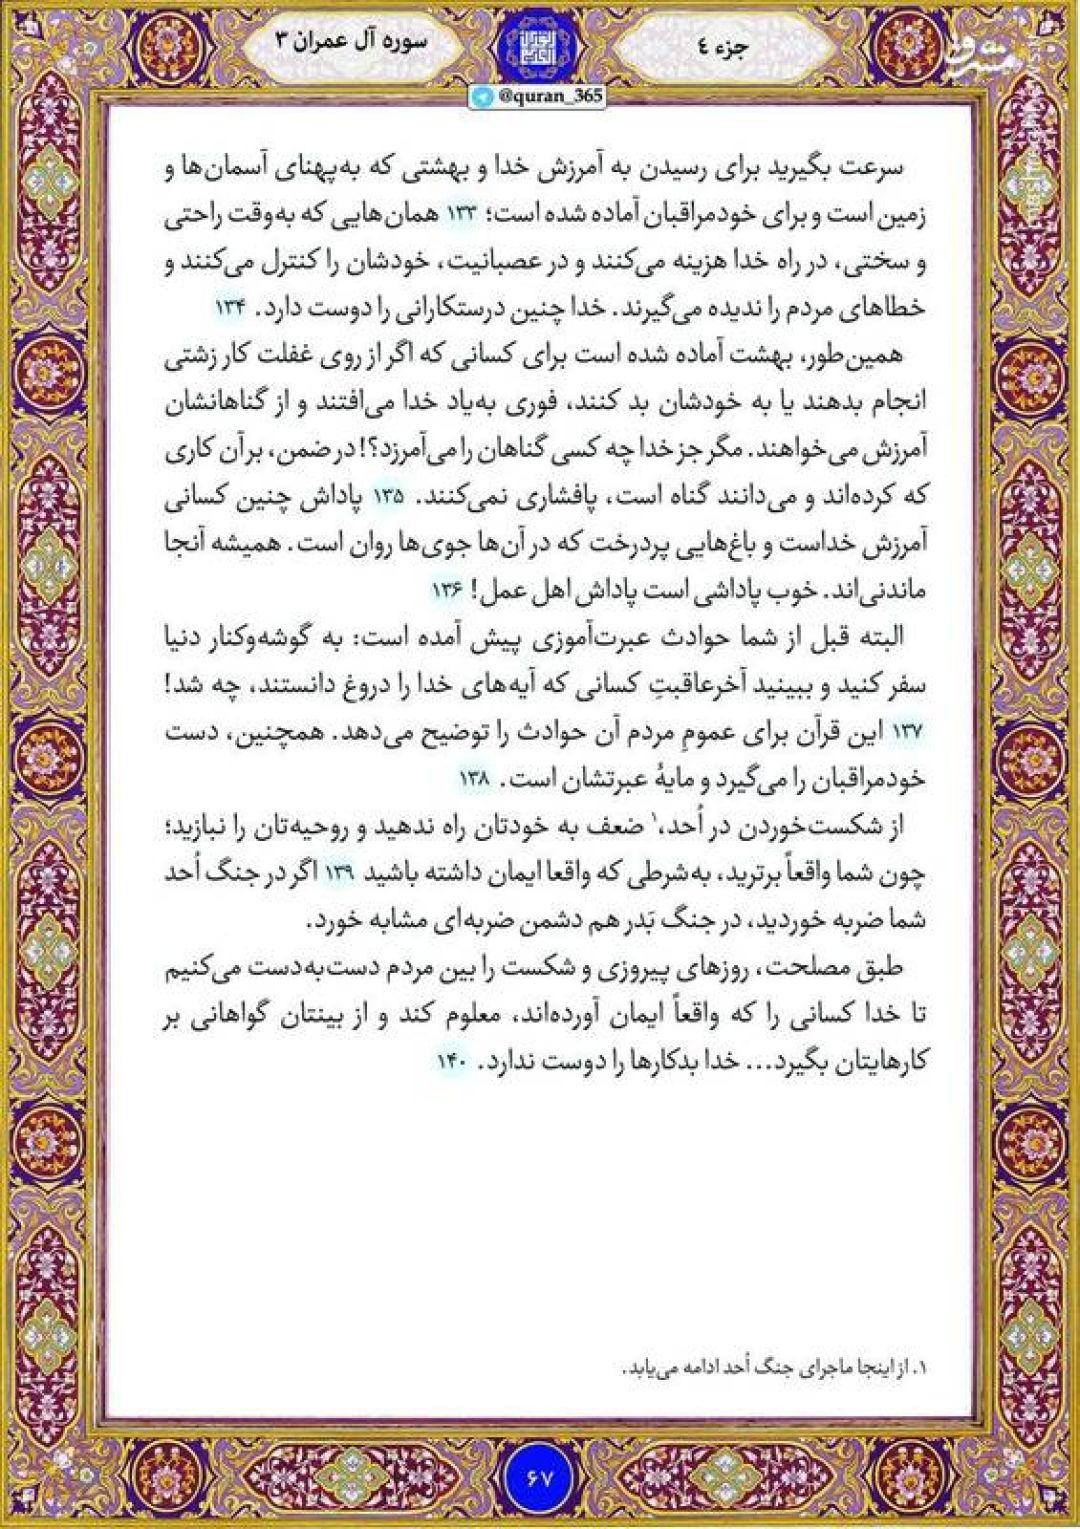 جزء ٤
سوره آل عمران ٣
@quran_365
مشرق
سرعت بگیرید برای رسیدن به آمرزش خدا و بهشتی که به‌پهنای آسمان‌ها و
زمین است و برای خودمراقبان آماده شده است؛ ۱۳۳ همان‌هایی که به‌وقت راحتی
و سختی، در راه خدا هزینه می‌کنند و در عصبانیت، خودشان را کنترل می‌کنند و
خطاهای مردم را ندیده می‌گیرند. خدا چنین درستکارانی را دوست دارد. ۱۳۴
همین‌طور، بهشت آماده شده است برای کسانی که اگر از روی غفلت کار زشتی
انجام بدهند یا به خودشان بد کنند، فوری به‌یاد خدا می‌افتند و از گناهانشان
آمرزش می‌خواهند. مگر جز خدا چه کسی گناهان را می‌آمرزد؟! در ضمن، بر آن کاری
که کرده‌اند و می‌دانند گناه است، پافشاری نمی‌کنند. ۱۳۵ پاداش چنین کسانی
آمرزش خداست و باغ‌هایی پردرخت که در آن‌ها جوی‌ها روان است. همیشه آنجا
ماندنی‌اند. خوب پاداشی است پاداش اهل عمل! ۱۳۶
البته قبل از شما حوادث عبرت‌آموزی پیش آمده است: به گوشه‌وکنار دنیا
سفر کنید و ببینید آخرعاقبتِ کسانی که آیه‌های خدا را دروغ دانستند، چه شد!
۱۳۷ این قرآن برای عمومِ مردم آن حوادث را توضیح می‌دهد. همچنین، دست
خودمراقبان را می‌گیرد و مایهٔ عبرتشان است. ۱۳۸
از شکست‌خوردن در اُحد،۱ ضعف به خودتان راه ندهید و روحیه‌تان را نبازید؛
چون شما واقعاً برترید، به‌شرطی که واقعا ایمان داشته باشید ۱۳۹ اگر در جنگ اُحد
شما ضربه خوردید، در جنگ بَدر هم دشمن ضربه‌ای مشابه خورد.
طبق مصلحت، روزهای پیروزی و شکست را بین مردم دست‌به‌دست می‌کنیم
تا خدا کسانی را که واقعاً ایمان آورده‌اند، معلوم کند و از بینتان گواهانی بر
کارهایتان بگیرد... خدا بدکارها را دوست ندارد. ۱۴۰
۱. از اینجا ماجرای جنگ اُحد ادامه می‌یابد.
۶۷